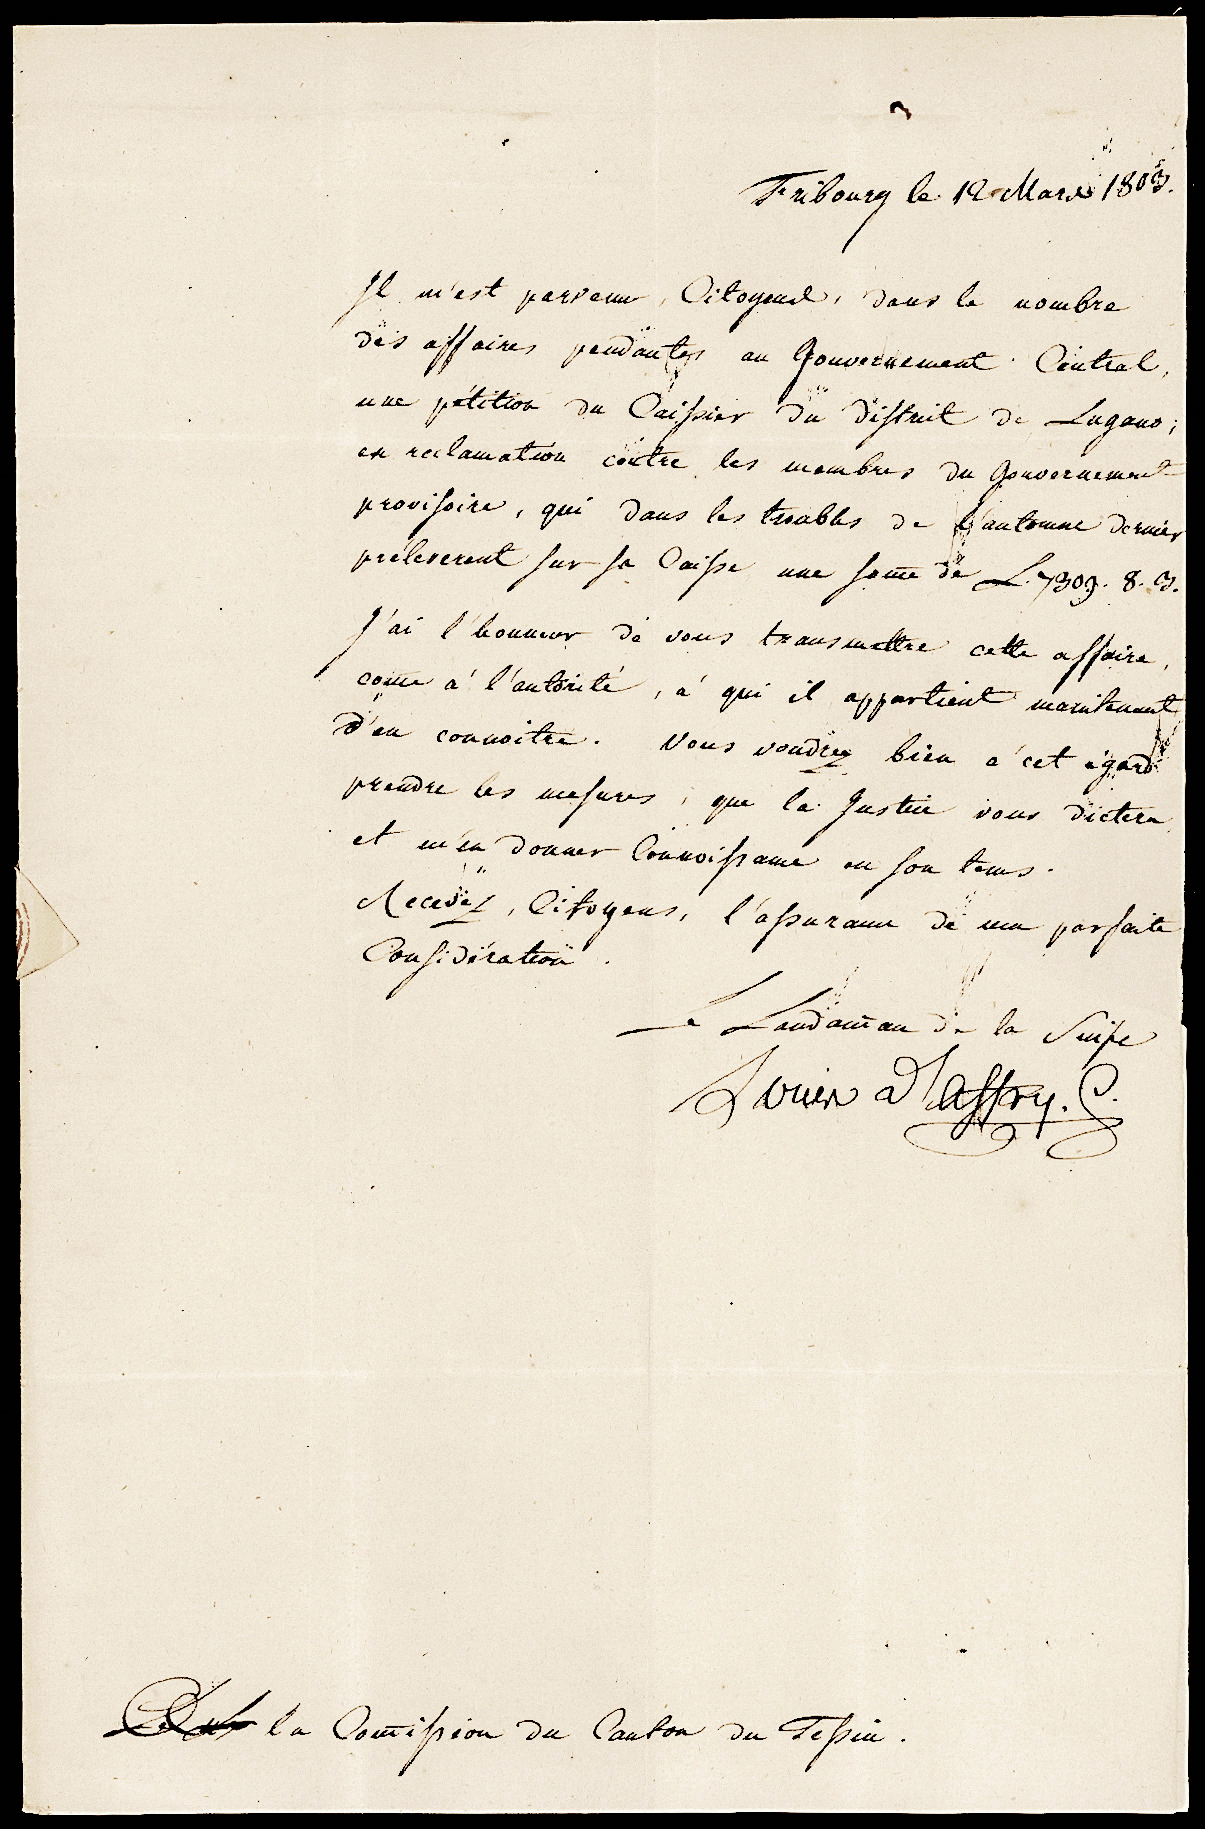 Fribourg le 12 Mars 1803.
Il m'est parvenu, Citoyens, dans le nombre
des affaires pendantes au Gouvernement Central,
une pétition du Caissier du district de Lugano;
en reclamation contre les membres du Gouvernement
provisoire, qui dans les troubles de l'automne dernier
prélevèrent sur sa Caisse une some de L. 7309. 8. 3.
J'ai l'honneur de vous transmettre cette affaire,
come à l'autorité, à qui il appartient maintenant
d'en connoitre. Vous voudrez bien à cet égard
prendre les mesures, que la Justice vous dictera
et m'en donner Connoissance en son tems.
Recevez, Citoyens, l'assurance de ma parfaite
Considération.
Le Landaman de la Suisse
Louis d'affry. C.
la Comission du Canton du Tessin.